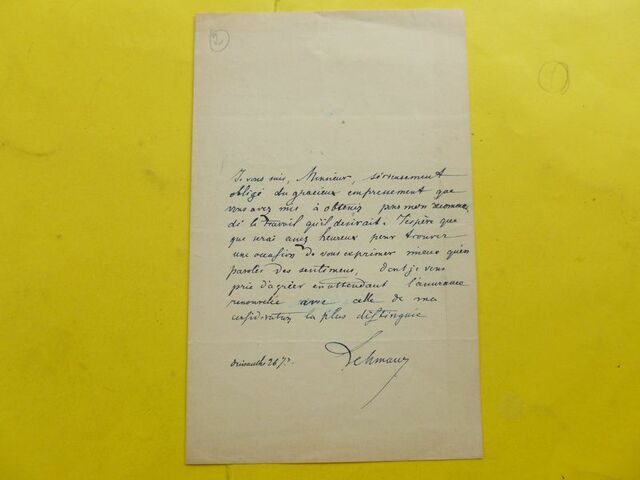 2
1
Je vous suis, Monsieur, sérieusement
obligé du gracieux empressement que
vous avez mis à obtenir pour mon recomman
dé le travail qu'il désirait. J'espère que
que serai assez heureux pour trouver
une occasion de vous exprimer mieux qu'en
paroles des sentimens, dont je vous
prie d'agréer en attendant l'assurance
renouvelée avec celle de ma
considération la plus distinguée
26 7
Lehmann